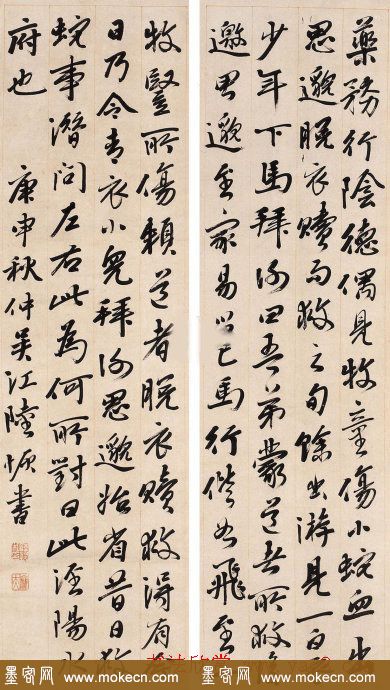 藥務行陰德偶見牧童傷小蛇血出
思邈脫衣贖而救之旬餘出游見一白
少年下馬拜謝曰吾弟蒙道者所救
邀思邈至家易以己馬行偕如飛至
牧豎所傷賴道者脫衣贖救得有
日乃令青衣小兒拜謝思邈始省昔日救
蛇事潛問左右此為何所對曰此涇陽水
府也 庚申秋仲吳江陸恢書
墨客网 www.mokecn.com
墨客网 www.mokecn.com